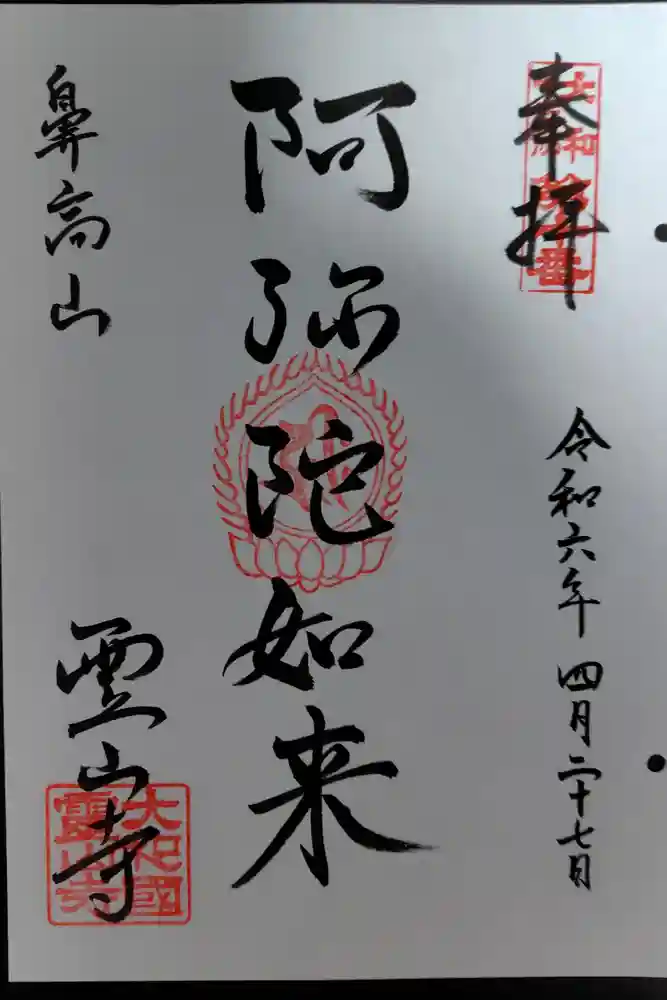 奉拝
令和六年 四月二十七日
阿弥陀如来
鼻高山
霊山寺
大和國
霊山寺